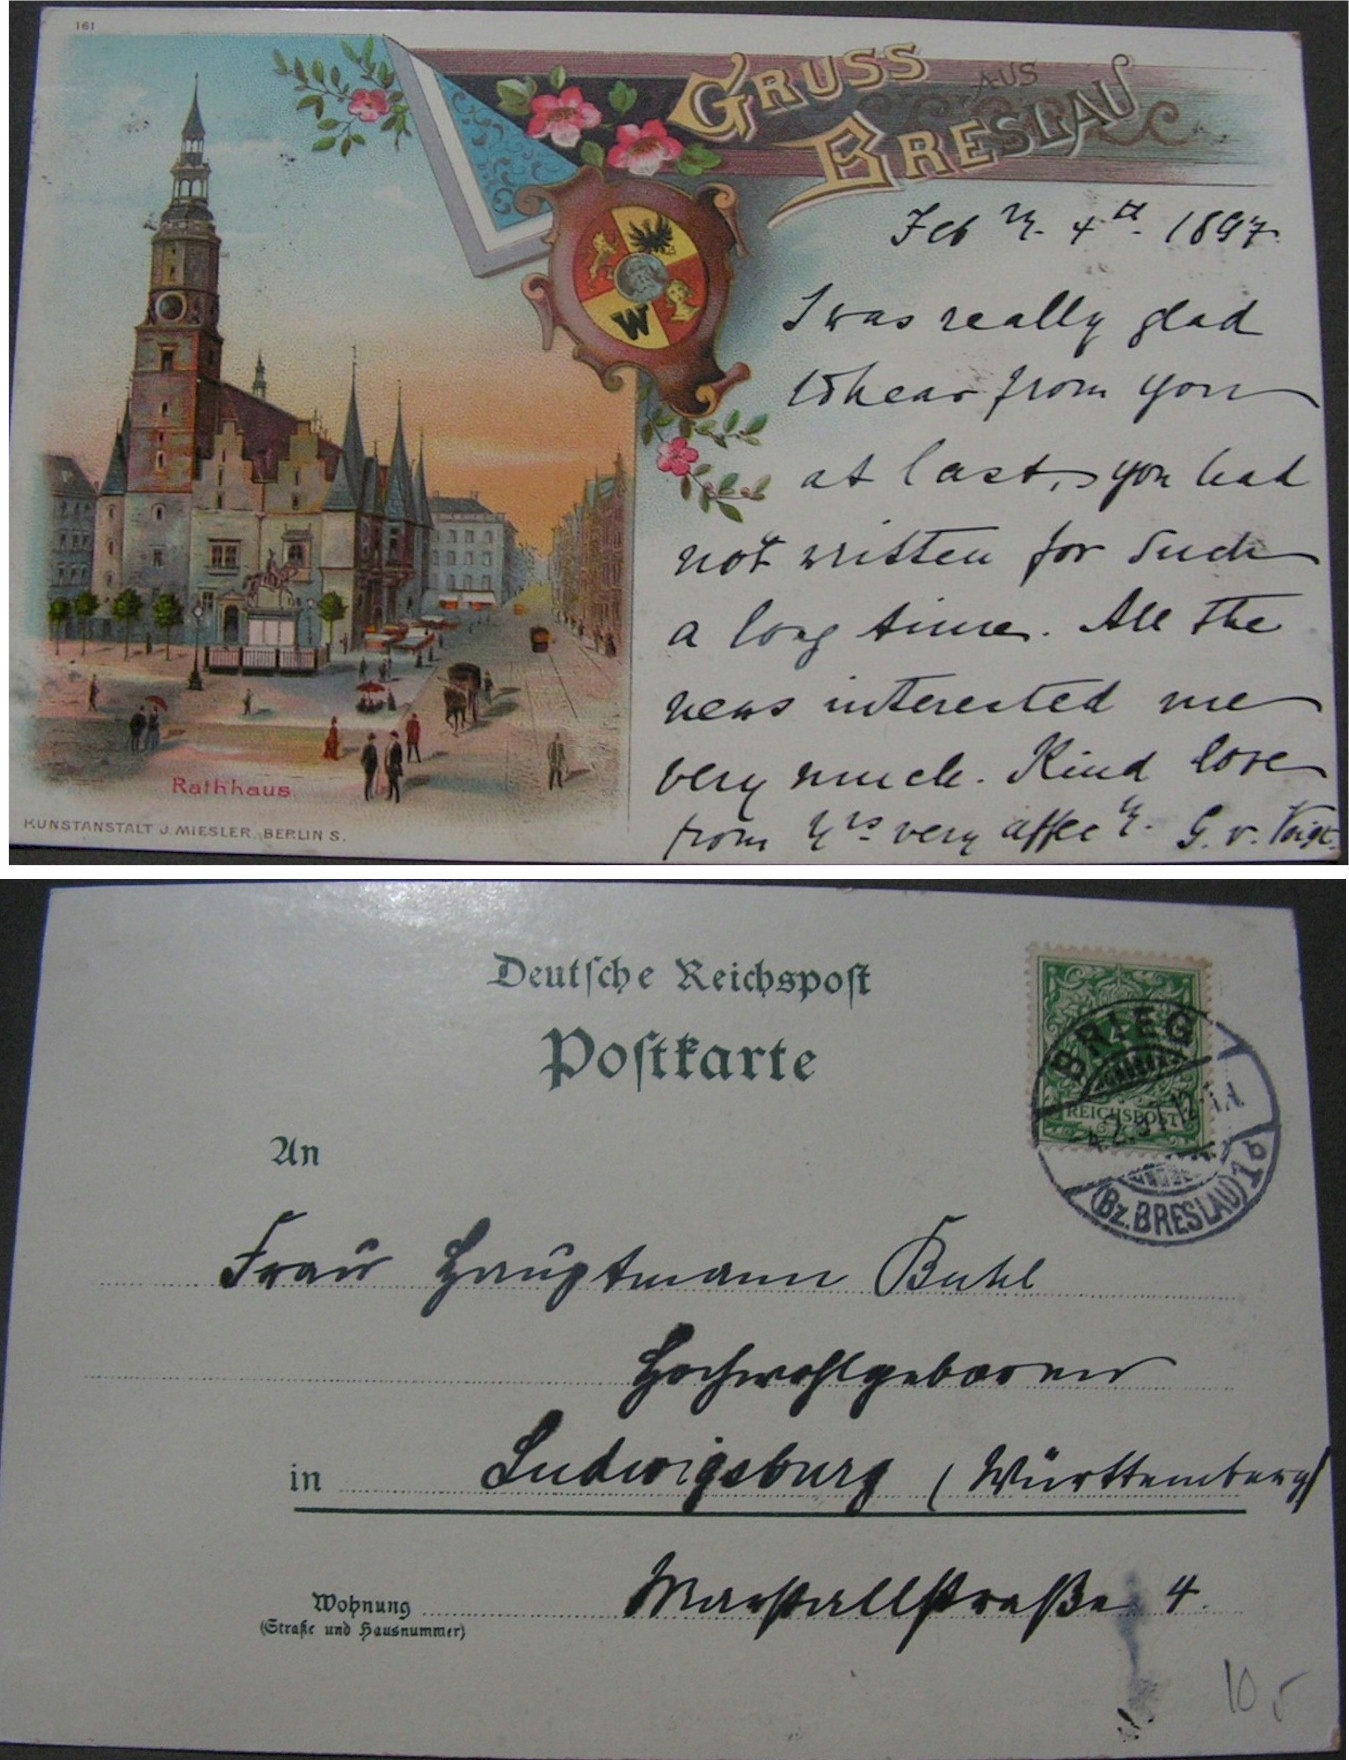 161
GRUSS AUS
BRESLAU
W
Feb ry. 4th. 1897.
I was really glad
to hear from you
at last, you had
not written for such
a long time. All the
news interested me
very much. Kind love
from yrs very affec ly. G. v. Voigt.
Rathhaus
KUNSTANSTALT J. MIESLER, BERLIN S.
Deutsche Reichspost
Postkarte
BRIEG
REICHSPOST
4.2.97.12-1N
(Bz. BRESLAU) 1d
An
Frau Hauptmann Buhl
Hochwohlgeboren
in Ludwigsburg (Württemberg)
Wohnung Marstallstraße 4.
(Straße und Hausnummer)
10